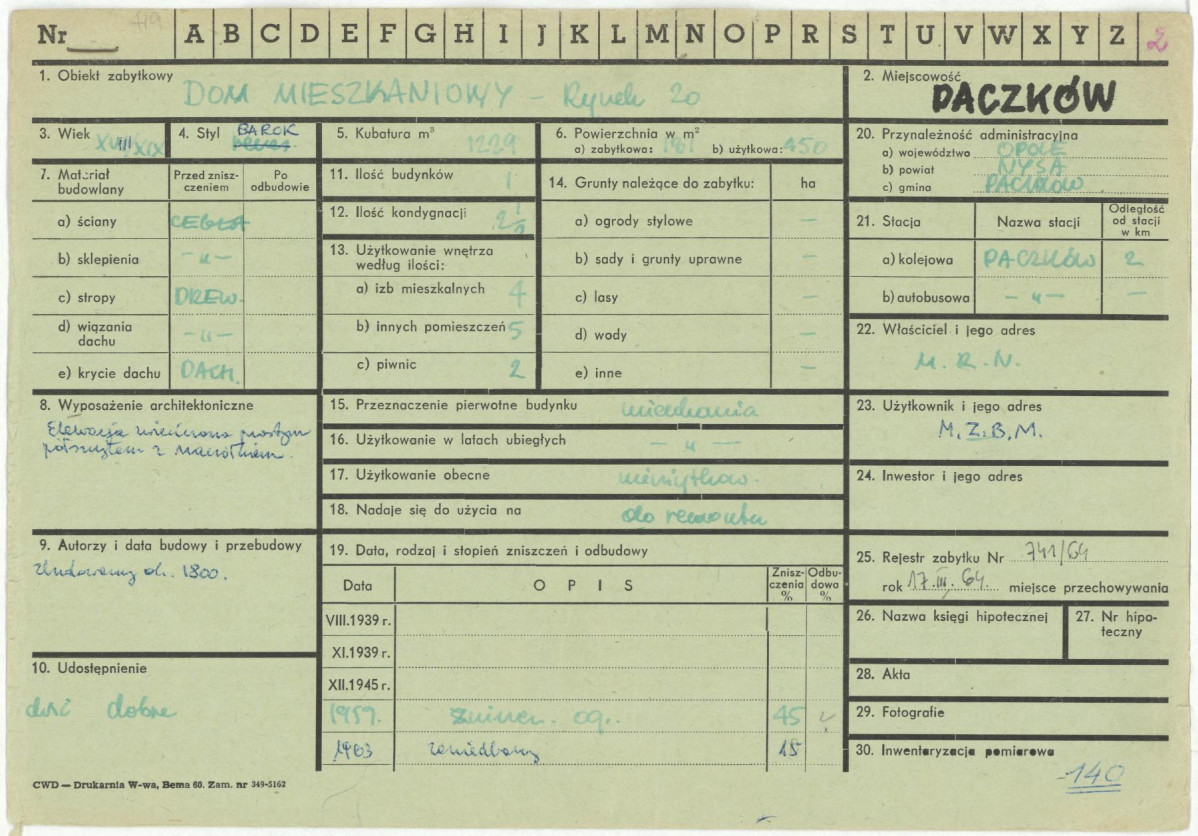 Nr 419 A B C D E F G H I J K L M N O P R S T U V W X Y Z 2
1. Obiekt zabytkowy
DOM MIESZKANIOWY – Rynek 20
2. Miejscowość
PACZKÓW
3. Wiek XVIII/XIX
4. Styl BAROK
5. Kubatura m³ 1229
6. Powierzchnia w m²
a) zabytkowa: 161 b) użytkowa: 450
20. Przynależność administracyjna
a) województwo OPOLE
b) powiat NYSA
c) gmina PACZKÓW
7. Materiał budowlany
Przed zniszczeniem
Po odbudowie
a) ściany CEGŁA
b) sklepienia –„–
c) stropy DREW.
d) wiązania dachu –„–
e) krycie dachu DACH.
11. Ilość budynków 1
12. Ilość kondygnacji 2 1/2
13. Użytkowanie wnętrza według ilości:
a) izb mieszkalnych 4
b) innych pomieszczeń 5
c) piwnic 2
14. Grunty należące do zabytku: ha
a) ogrody stylowe –
b) sady i grunty uprawne –
c) lasy –
d) wody –
e) inne –
21. Stacja Nazwa stacji Odległość od stacji w km
a) kolejowa PACZKÓW 2
b) autobusowa –„– –
22. Właściciel i jego adres
M. R. N.
8. Wyposażenie architektoniczne
Elewacja zwieńczona prostym
półszczytem z
15. Przeznaczenie pierwotne budynku mieszkania
16. Użytkowanie w latach ubiegłych –„–
17. Użytkowanie obecne nieużytkow.
18. Nadaje się do użycia na do remontu
23. Użytkownik i jego adres
M.Z.B.M.
24. Inwestor i jego adres
9. Autorzy i data budowy i przebudowy
Zbudowany ok. 1800.
19. Data, rodzaj i stopień zniszczeń i odbudowy
Data OPIS Zniszczenia % Odbudowa %
VIII.1939 r.
XI.1939 r.
XII.1945 r.
1959. og. 45
1963 zaniedbany 15
25. Rejestr zabytku Nr 741/64
rok 17.III.64. miejsce przechowywania
26. Nazwa księgi hipotecznej
27. Nr hipoteczny
10. Udostępnienie
dość dobre
28. Akta
29. Fotografie
30. Inwentaryzacja pomiarowa
140
CWD — Drukarnia W-wa, Bema 60. Zam. nr 349-5162